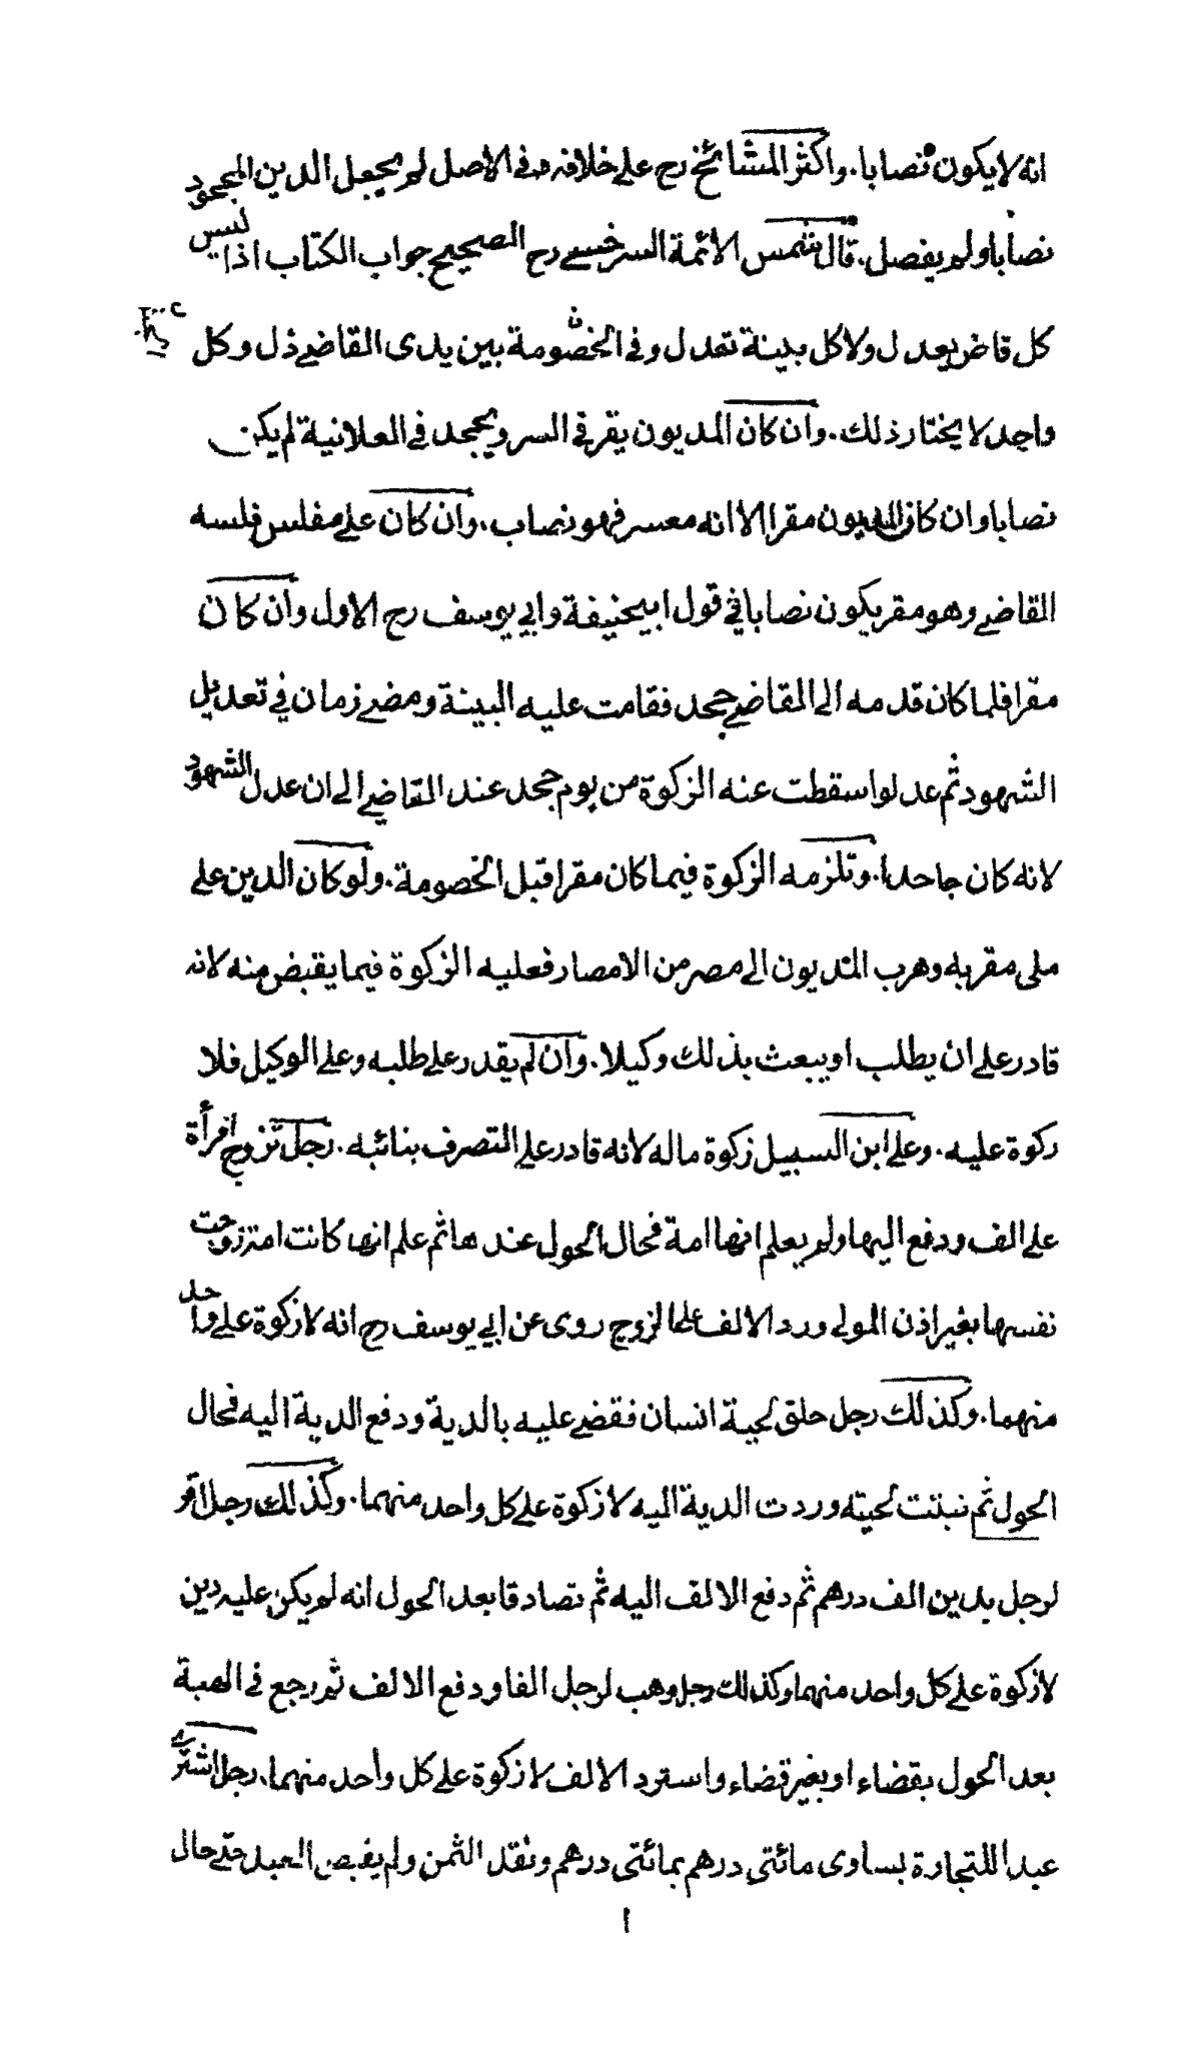 انه لا يكون نصابا. واكثر المشائخ رح على خلافه وفى الاصل لم يجعل الدين المجحود
نصابا ولم يفصل. قال شمس الائمة السرخسي رح الصحيح جواب الكتاب اذا ليس
كل قاض يعدل ولا كل بينة تعدل وفى الخصومة بين يدى القاضي ذل وكل
واحد لا يختار ذلك. وان كان المديون يقر في السر ويجحد في العلانية لم يكن
نصابا وان كان المديون مقرا الا انه معسر فهو نصاب. وان كان على مفلس فلسه
القاضي وهو مقر يكون نصابا في قول ابيحنيفة وابي يوسف رح الاول وان كان
مقرا فلما كان قدمه الى القاضي جحد فقامت عليه البينة ومضى زمان في تعديل
الشهود ثم عدلوا سقطت عنه الزكوة من يوم جحد عند القاضي الى ان عدل الشهود
لانه كان جاحدا. وتلزمه الزكوة فيما كان مقرا قبل الخصومة. ولو كان الدين على
ملى مقر به وهرب المديون الى مصر من الامصار فعليه الزكوة فيما يقبض منه لانه
قادر على ان يطلب او يبعث بذلك وكيلا. وان لم يقدر على طلبه وعلى الوكيل فلا
زكوة عليه. وعلى ابن السبيل زكوة ماله لانه قادر على التصرف بنائبه. رجل تزوج امرأة
على الف ودفع اليها ولم يعلم انها امة فحال الحول عندها ثم علم انها كانت امة زوجت
نفسها بغير اذن المولى ورد الالف على الزوج روى عن ابي يوسف رح انه لا زكوة على واحد
منهما. وكذلك رجل حلق لحية انسان فقضى عليه بالدية ودفع الدية اليه فحال
الحول ثم نبتت لحيته وردت الدية اليه لا زكوة على كل واحد منهما. وكذلك رجل اقر
لرجل بدين الف درهم ثم دفع الالف اليه ثم تصادقا بعد الحول انه لم يكن عليه دين
لا زكوة على كل واحد منهما وكذلك رجل وهب لرجل الفا ودفع الالف ثم رجع في الهبة
بعد الحول بقضاء او بغير قضاء واسترد الالف لا زكوة على كل واحد منهما. رجل اشترى
عبدا للتجارة يساوى مائتى درهم بمائتى درهم ونقد الثمن ولم يقبض العبد حتى حال